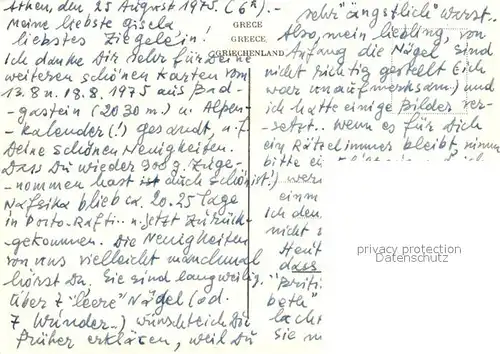 Athen, den 25 August 1975. (6⁰⁰).-
Meine liebste Gisela
liebstes Ziegelein!
Ich danke Dir sehr für Deine
weiteren schönen Karten vom
13.8 u. 18.8.1975 aus Bad-
-gastein (2030 m.) u. Alpen-
-kalender (!) gesandt, u. f.
Deine schönen Neuigkeiten.
Dass Du wieder 900 g. Zuge-
-nommen hast ist auch schön
Nafsika blieb ca. 20-25 Tage
in Porto-Rafti.. u. jetzt zurück-
-gekommen. Die Neuigkeiten
von uns vielleicht manchmal
hörst Du. Sie sind langweilig.
Über 7 "leere" Nägel (od.
7 Wunder..) wünschte ich Dir
früher erklären, weil Du
GRECE
GREECE
GRIECHENLAND
sehr "ängstlich" warst..
Also, mein liebling, von
Anfang die Nägel, sind
nicht richtig gestellt (ich
war unaufmerksam) und
ich hatte einige Bilder ver-
-setzt.. Wenn es für Dich
ein Rätsel immer bleibt, nimm
bitte
ist!) wer
einm
Ich den
nicht
Heut
dass
"Briti
beth"
lacht
Sie
privacy protection
Datenschutz